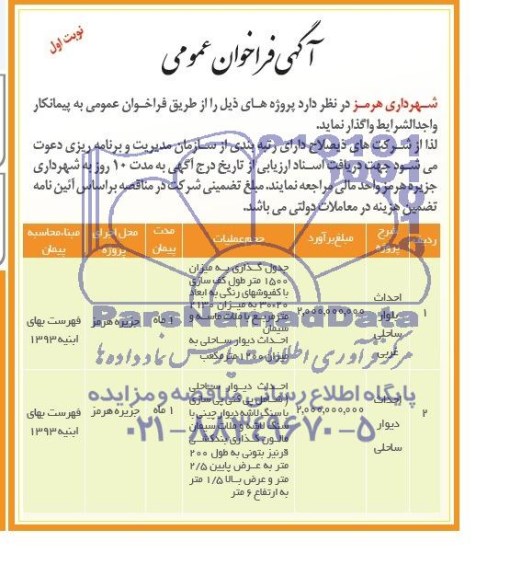 نوبت اول
آگهی فراخوان عمومی
شهرداری هرمز در نظر دارد پروژه های ذیل را از طریق فراخوان عمومی به پیمانکار
واجدالشرایط واگذار نماید.
لذا از شرکت های ذیصلاح دارای رتبه بندی از سازمان مدیریت و برنامه ریزی دعوت
می شود جهت دریافت اسناد ارزیابی از تاریخ درج آگهی به مدت ۱۰ روز به شهرداری
جزیره هرمز واحد مالی مراجعه نمایند. مبلغ تضمینی شرکت در مناقصه براساس آئین نامه
تضمین هزینه در معاملات دولتی می باشد.
ردیف شرح پروژه مبلغ برآورد حجم عملیات مدت پیمان محل اجرای پروژه مبنا، محاسبه پیمان
۱
احداث
بلوار
ساحلی
غربی
۲,۰۰۰,۰۰۰,۰۰۰
جدول گذاری به میزان
۱۵۰۰ متر طول کف سازی
با کفپوشهای رنگی به ابعاد
۲۰×۳۰ به میزان ۲۱۳۰
مترمربع با ملات ماسه و
سیمان
احداث دیوار ساحلی به
میزان ۱۲۰۰ مترمکعب
۱ ماه
جزیره هرمز
فهرست بهای
ابنیه ۱۳۹۳
۲
احداث
دیوار
ساحلی
۲,۰۰۰,۰۰۰,۰۰۰
احداث دیوار ساحلی
با سنگ لاشه دیوار چینی با
سنگ لاشه و ملات سیمان
قرنیز بتونی به طول ۲۰۰
متر به عرض پایین ۲/۵
متر و عرض بالا ۱/۵ متر
به ارتفاع ۶ متر
۱ ماه
جزیره هرمز
فهرست بهای
ابنیه ۱۳۹۳
ParsNamadData
مرکز فرآوری اطلاعات پارس نماد داده ها
پایگاه اطلاع رسانی مناقصه و مزایده
۰۲۱-۸۸۳۴۹۶۷۰-۵